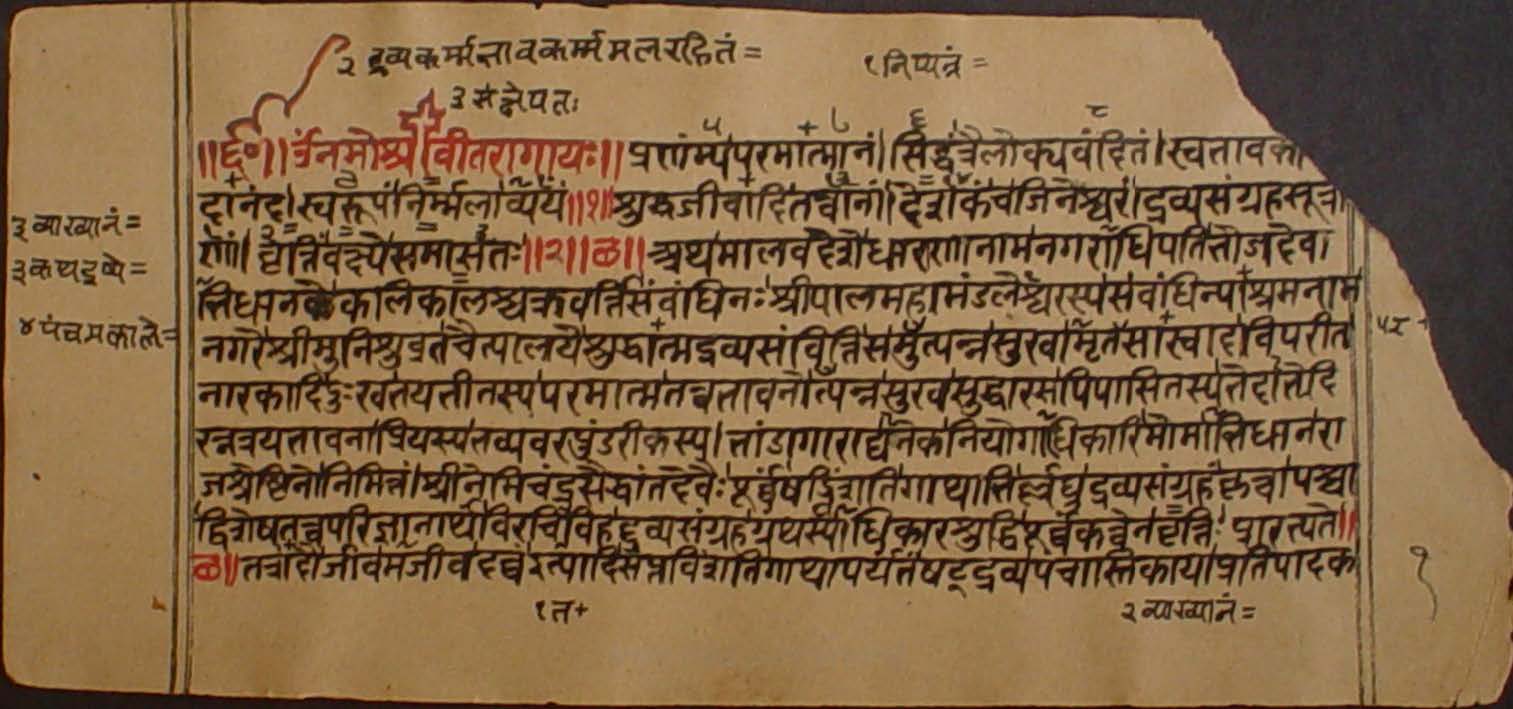 २ द्रव्यकर्म्मभावकर्म्ममलरहितं=
१ निष्पन्नं=
३ संक्षेपतः
॥६०॥ ॐ नमो श्रीवीतरागायः॥ प्रणम्य परमात्मानं। सिद्धं त्रैलोक्यवंदितं। स्वभाव
दानंद। स्वरूपं निर्म्मलाव्ययं॥१॥ शुद्धजीवादितत्वानां। देशकं च जिनेश्वरं। द्रव्यसंग्रहसूत्रा
णां। वृत्तिं वक्ष्ये समासतः॥२॥छ॥ अथ मालवदेशे धारानामनगराधिपतिभोजदेवा
भिधानकलिकालचक्रवर्त्तिसंबंधिनः श्रीपालमहामंडलेश्वरस्य संबंधिन्याश्रमनाम
नगरे श्रीमुनिश्रुव्रतचैत्यालये शुद्धात्मद्रव्यसंवित्तिसमुत्पन्नसुखामृतरसास्वादविपरीत
नारकादिदुःखभयभीतस्य परमात्मतत्वभावनोत्पन्नसुखसुद्धारसपिपासितस्य भेदाभेदि
रत्नत्रयभावनाप्रियस्य भव्यवरपुंडरीकस्य। भांडागाराद्यनेकनियोगाधिकारिसोमाभिधानरा
जश्रेष्टिनो निमित्तं। श्रीनेमिचंद्रसैद्धांतदेवैः पूर्वं षड्विंशतिगाथाभिर्लघुद्रव्यसंग्रहं कृत्वा पश्चा
द्विशेषतत्वपरिज्ञानार्थं विरचितवृहद्द्रव्यसंग्रहग्रंथस्याधिकारशुद्धिपूर्वकत्वेन वृत्तिः प्रारभ्यते॥
छ॥ तत्रादौ जीवमजीवं दव्वं इत्यादिसप्तविंशतिगाथापर्यंतं षट्द्रव्यपंचास्तिकायप्रतिपादक
३ व्याख्यानं=
३ कथइष्ये=
४ पंचमकाले=
१ त+
२ व्याख्यानं=
१